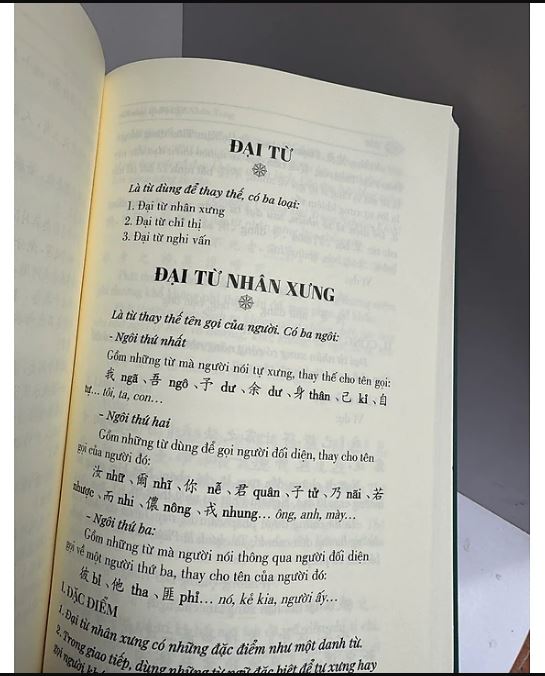 ĐẠI TỪ
Là từ dùng để thay thế, có ba loại:
1. Đại từ nhân xưng
2. Đại từ chỉ thị
3. Đại từ nghi vấn
ĐẠI TỪ NHÂN XƯNG
Là từ thay thế tên gọi của người. Có ba ngôi:
- Ngôi thứ nhất
Gồm những từ mà người nói tự xưng, thay thế cho tên gọi:
我 ngã、吾 ngô、予 dư、余 dư、身 thân、己 kỉ、自
tự... tôi, ta, con...
- Ngôi thứ hai
Gồm những từ dùng để gọi người đối diện, thay cho tên
gọi của người đó:
汝 nhữ、爾 nhĩ、你 nễ、君 quân、子 tử、乃 nãi、若
nhược、而 nhi、儂 nông、戎 nhung... ông, anh, mày...
- Ngôi thứ ba:
Gồm những từ mà người nói thông qua người đối diện
gọi về một người thứ ba, thay cho tên của người đó:
彼 bỉ、他 tha、匪 phỉ... nó, kẻ kia, người ấy...
I. ĐẶC ĐIỂM
1. Đại từ nhân xưng có những đặc điểm như một danh từ.
2. Trong giao tiếp, dùng những từ ngữ đặc biệt để tự xưng hay
gọi người